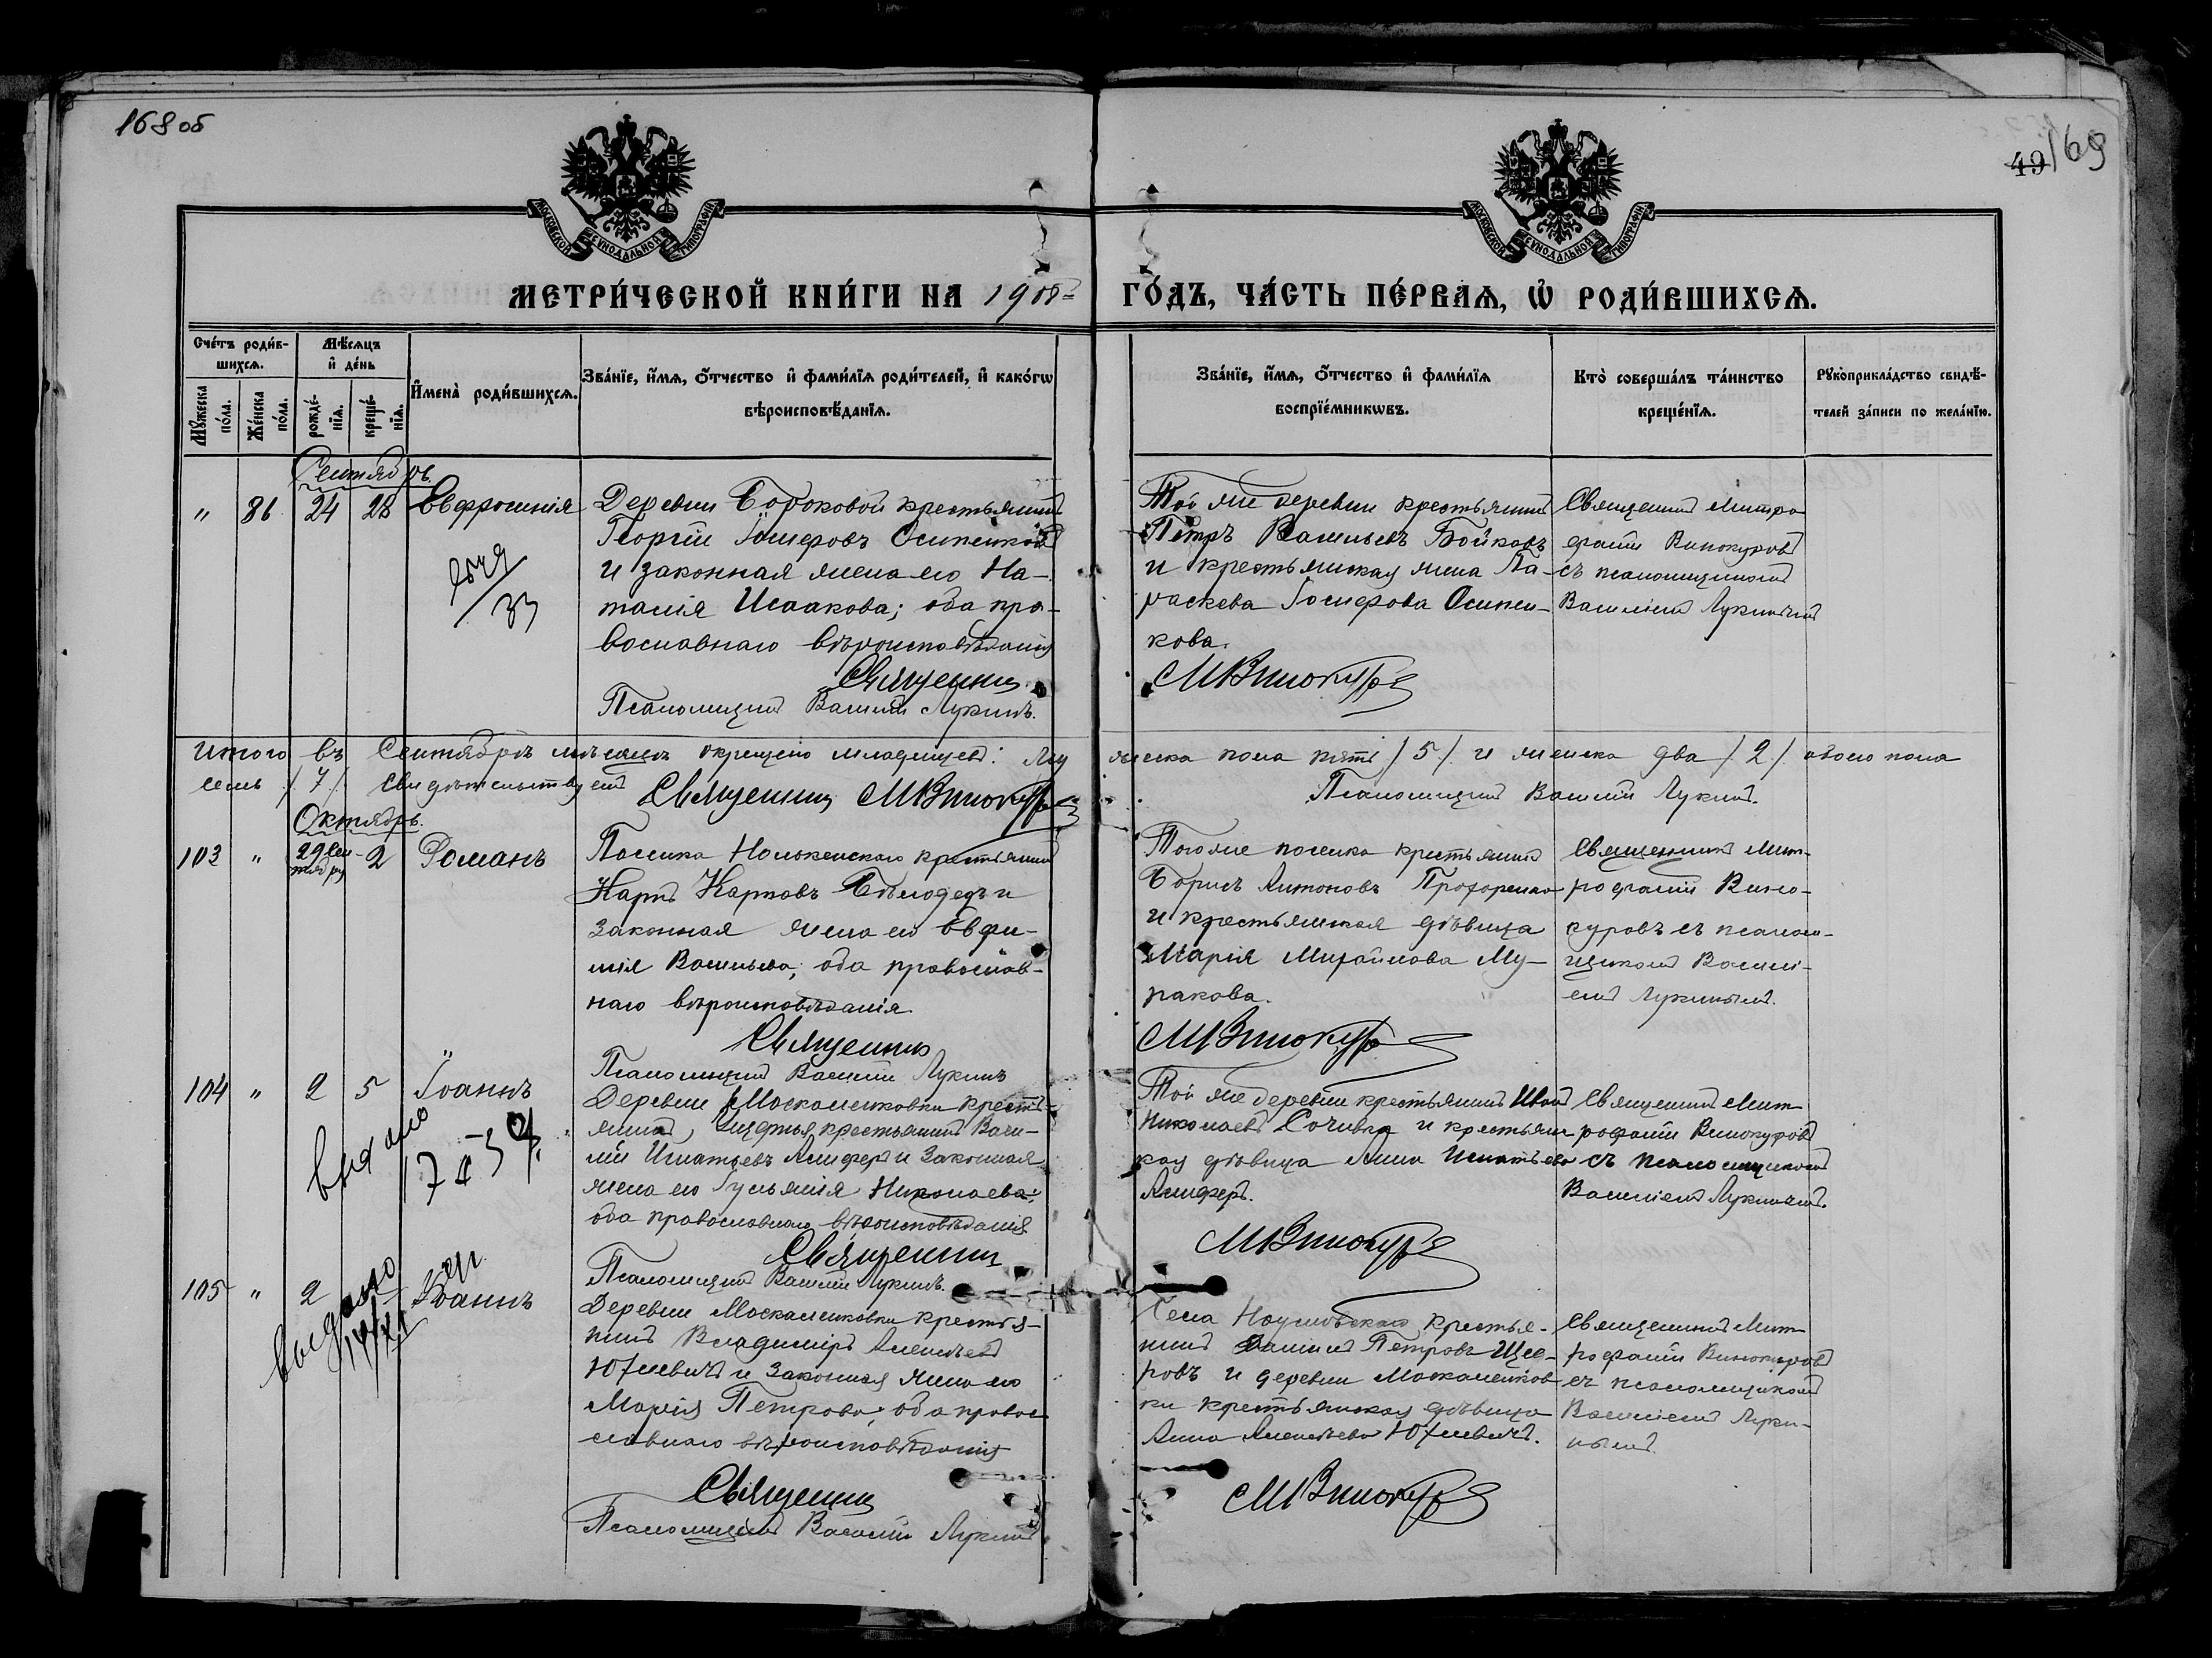 168 об
49 169
МОСКОВСКОЙ СѴНОДАЛЬНОЙ ТИПОГРАФІИ
МОСКОВСКОЙ СѴНОДАЛЬНОЙ ТИПОГРАФІИ
МЕТРИ́ЧЕСКОЙ КНИ́ГИ НА 1908 ГО́ДЪ, ЧА́СТЬ ПЕ́РВАѦ, Ѡ҆ РОДИ́ВШИХСѦ.
Сче́тъ роди́в-
шихсѧ.
Мꙋжеска по́ла.
Же́нска по́ла.
Мѣ́сѧцъ
и҆ де́нь
рожде́-
нїѧ.
креще́-
нїѧ.
И҆мена̀ роди́вшихсѧ.
Зва́нїе, и҆́мѧ, ѻ҆́тчество и҆ фами́лїѧ роди́телей, и҆ како́гѡ
вѣроисповѣ́данїѧ.
Зва́нїе, и҆́мѧ, ѻ҆́тчество и҆ фами́лїѧ
воспрїе́мникѡвъ.
Кто̀ соверша́лъ та́инство
креще́нїѧ.
Рꙋкоприкла́дство свидѣ́-
телей за́писи по жела́нїю.
Сентябрь.
" 86 24 28 Евфросинія
Деревни Бороковой крестьянинъ
Георгій Іосифовъ Осипенковъ
и законная жена его На-
талія Исаакова; оба пра-
вославнаго вѣроисповѣданія
Священникъ
Псаломщикъ Василій Лукинъ.
Той же деревни крестьянинъ
Петръ Васильевъ Бойковъ
и крестьянская жена Па-
раскева Іосифова Осипен-
кова.
МВинокуровъ
Священникъ Митро-
фанъ Винокуровъ
съ псаломщикомъ
Василіемъ Лукинымъ
Итого въ Сентябрѣ мѣсяцѣ окрещено младенцевъ: му
жеска пола пять /5/ и женска два /2/ обоего пола
семь /7/. Свидѣтельствуемъ Священникъ МВинокуровъ
Псаломщикъ Василій Лукинъ.
Октябрь.
103 " 29 Сен-
тября 2 Романъ
Поселка Нолькенскаго крестьянинъ
Карпъ Карповъ Бѣлодедъ и
законная жена его Евфи-
мія Васильева; оба православ-
наго вѣроисповѣданія.
Священникъ
Псаломщикъ Василій Лукинъ
Того же поселка крестьянинъ
Борисъ Антоновъ Прохоренко
и крестьянская дѣвица
Марія Михайлова Му-
ракова.
МВинокуровъ
Священникъ Мит-
рофанъ Вино-
куровъ съ псалом-
щикомъ Василі-
емъ Лукинымъ.
104 " 2 5 Іоаннъ
выдано
Деревни Москаленковки крестья-
нинъ, крестьянинъ Васи-
лій Игнатьевъ и законная
жена его Николаева;
оба православнаго вѣроисповѣданія
Священникъ
Псаломщикъ Василій Лукинъ.
Той же деревни крестьянинъ
Николаевъ и крестьянс
кая дѣвица Анна Игнатьева
МВинокуровъ
Священникъ Мит-
рофанъ Винокуровъ
съ псаломщикомъ
Василіемъ Лукинымъ.
105 " 2 Іоаннъ
выдано
Деревни Москаленковки крестья-
нинъ Владиміръ Алексѣевъ
Юхневичъ и законная жена его
Марія Петрова; оба право-
славнаго вѣроисповѣданія
Священникъ
Псаломщикъ Василій Лукинъ
Села крестья-
нинъ Петровъ
и деревни Москаленков-
ки крестьянская дѣвица
Анна Алексѣева Юхневичъ.
МВинокуровъ
Священникъ Мит-
рофанъ Винокуровъ
съ псаломщикомъ
Василіемъ Луки-
нымъ.